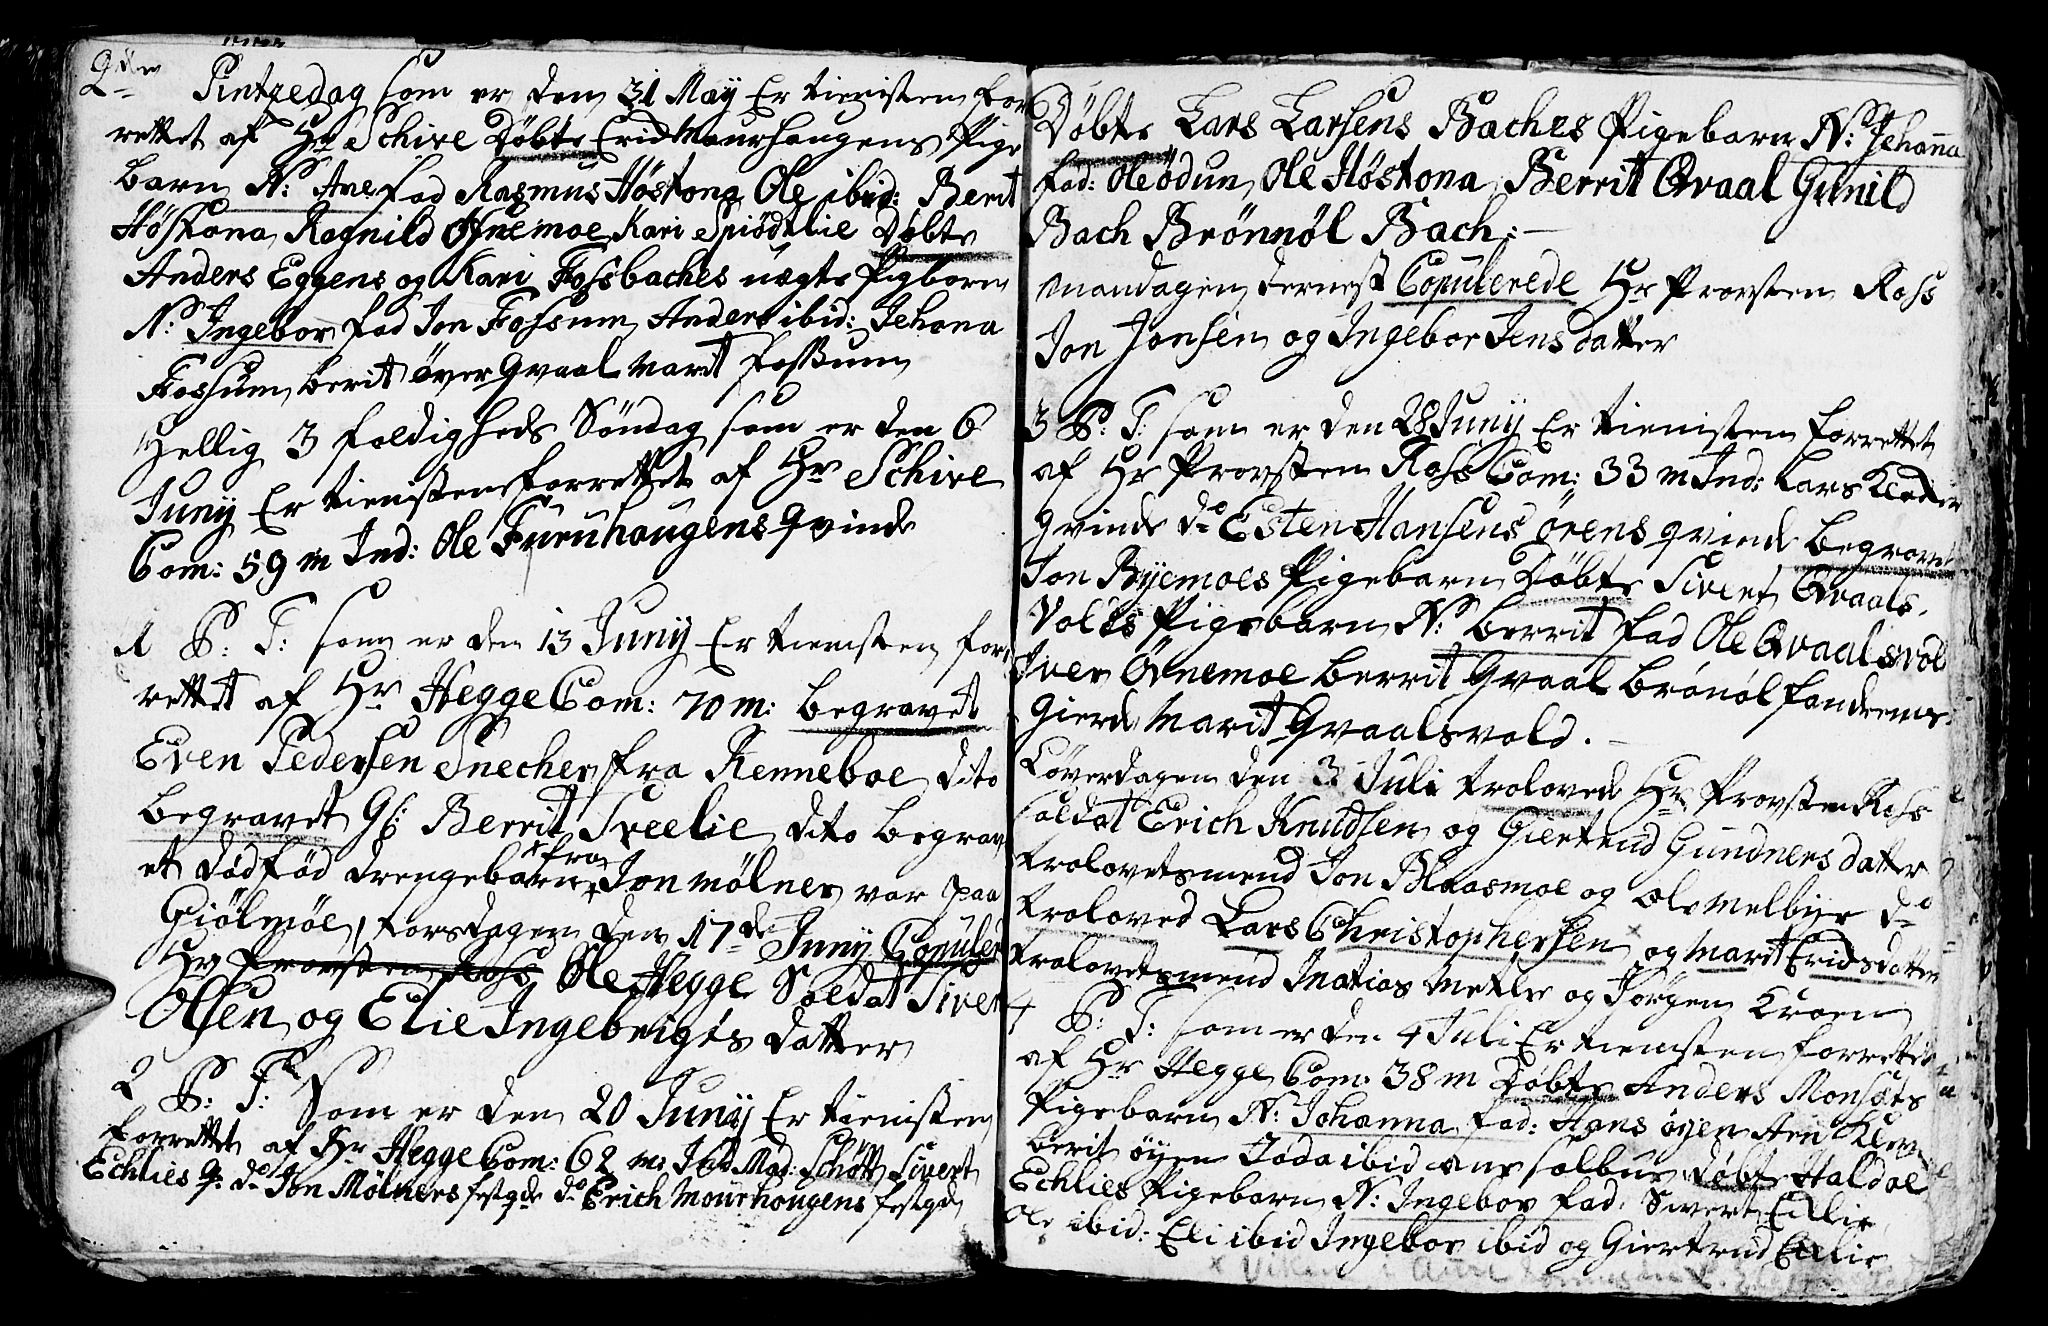 2den Pintzedag som er den 31 May Er tienisten for
rettet af Hr Schive Døbte Erich Mourhaugens Pige
barn N: Ane fad Rasmus Høstona Ole ibid: Berit
Høstona Ragnild Ofnemoe Kari Spiødtlie Døbte
Anders Eggens og Kari Fossbaches uegte Pigbarn
N: Ingebor fad Jon Fossum Anders ibid: Jehana
Fossum berit över Qvaal Marit fossum
Hellig 3 foldigheds Söndag som er den 6
Juny Er tiensten forrettet af Hr Schive
Com: 59 m Ind: Ole Furuhaugens qvinde
1 P: T: som er den 13 Juny Er tiensten for
rettet af Hr Hegge Com: 70 m: begravet
Even Pedersen Snecher fra Renneboe dito
begravet Gl: Berrit Sveelie dito begrav
et dödföd drengebarn fra Jon mölner var paa
Giölmöe, torsdagen den 17de Juny Copuler
Hr Provsten Ross Ole Hegge Soldat Siver
Olsen og Elie Ingebrigts datter
2 P: T: Som er den 20 Juny Er tienisten
forrettet af Hr Hegge Com: 62 m: Ind Mad: Schött Sivert
Echlies q: do Jon Mölners festqde do Erich Mourhougens festqd
Döbte Lars Larsens Baches Pigebarn N: Jehanna
fad: Ole ödun, Ole Höstona Berrit Qvaal Gunild
Bach Brönnöl Bach:
Mandagen dernest Copulerede Hr Provsten Ross
Jon Jonsen og Ingebor Jens datter
3 P: T: som er den 28 Juny Er tienisten forrettet
af Hr Provsten Ross Com: 33 m Ind: Lars
qvinde do Esten Hansens örens qvinde begravet
Jon Byemoes Pigebarn Döbte Sivert Qvaals
Volds Pigebarn N: berrit fad Ole Qvaalsvold
Iver Ovnemoe berrit Qvaal brönöl
Gierd Marit Qvaalsvold.
Löverdagen den 3 Juli troloved Hr Provsten Ross
soldat Erich Knudsen og Giertrud Gundners datter
trolovetsmend Jon Blaasmoe og Ole Melbye do
troloved Lars Christophersen × og Marit Erichsdatter
trolovetsmend Matias Metler og Jörgen Kroen
4 P: T: som er den 4 Juli Er tiensten forrettet
af Hr Hegge Com: 38 m Döbte Anders Monsöts
Pigebarn N: Johanna fad: Hans öyen Arn
berit öyen ibid Döbte Haldoe
Echlies Pigebarn N: Ingebor fad: Sivert Ecklie
Ole ibid: Eli ibid Ingebor ibid og Giertrud Ecklie